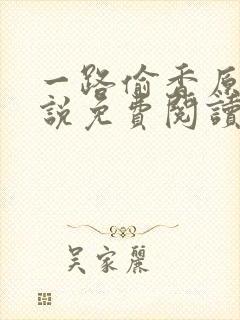 一路偷香原
說免費閱讀
吳家麗